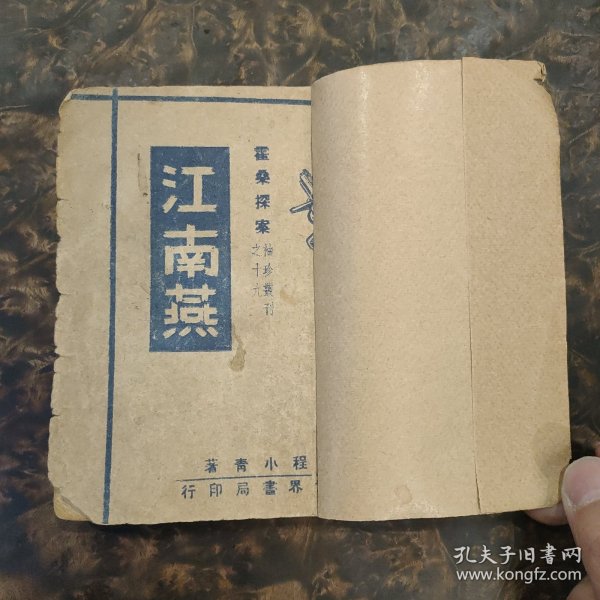 霍桑探案
袖珍叢刊
之十九
江南燕
程小青著
界書局印行
孔夫子旧书网
www.kongfz.com